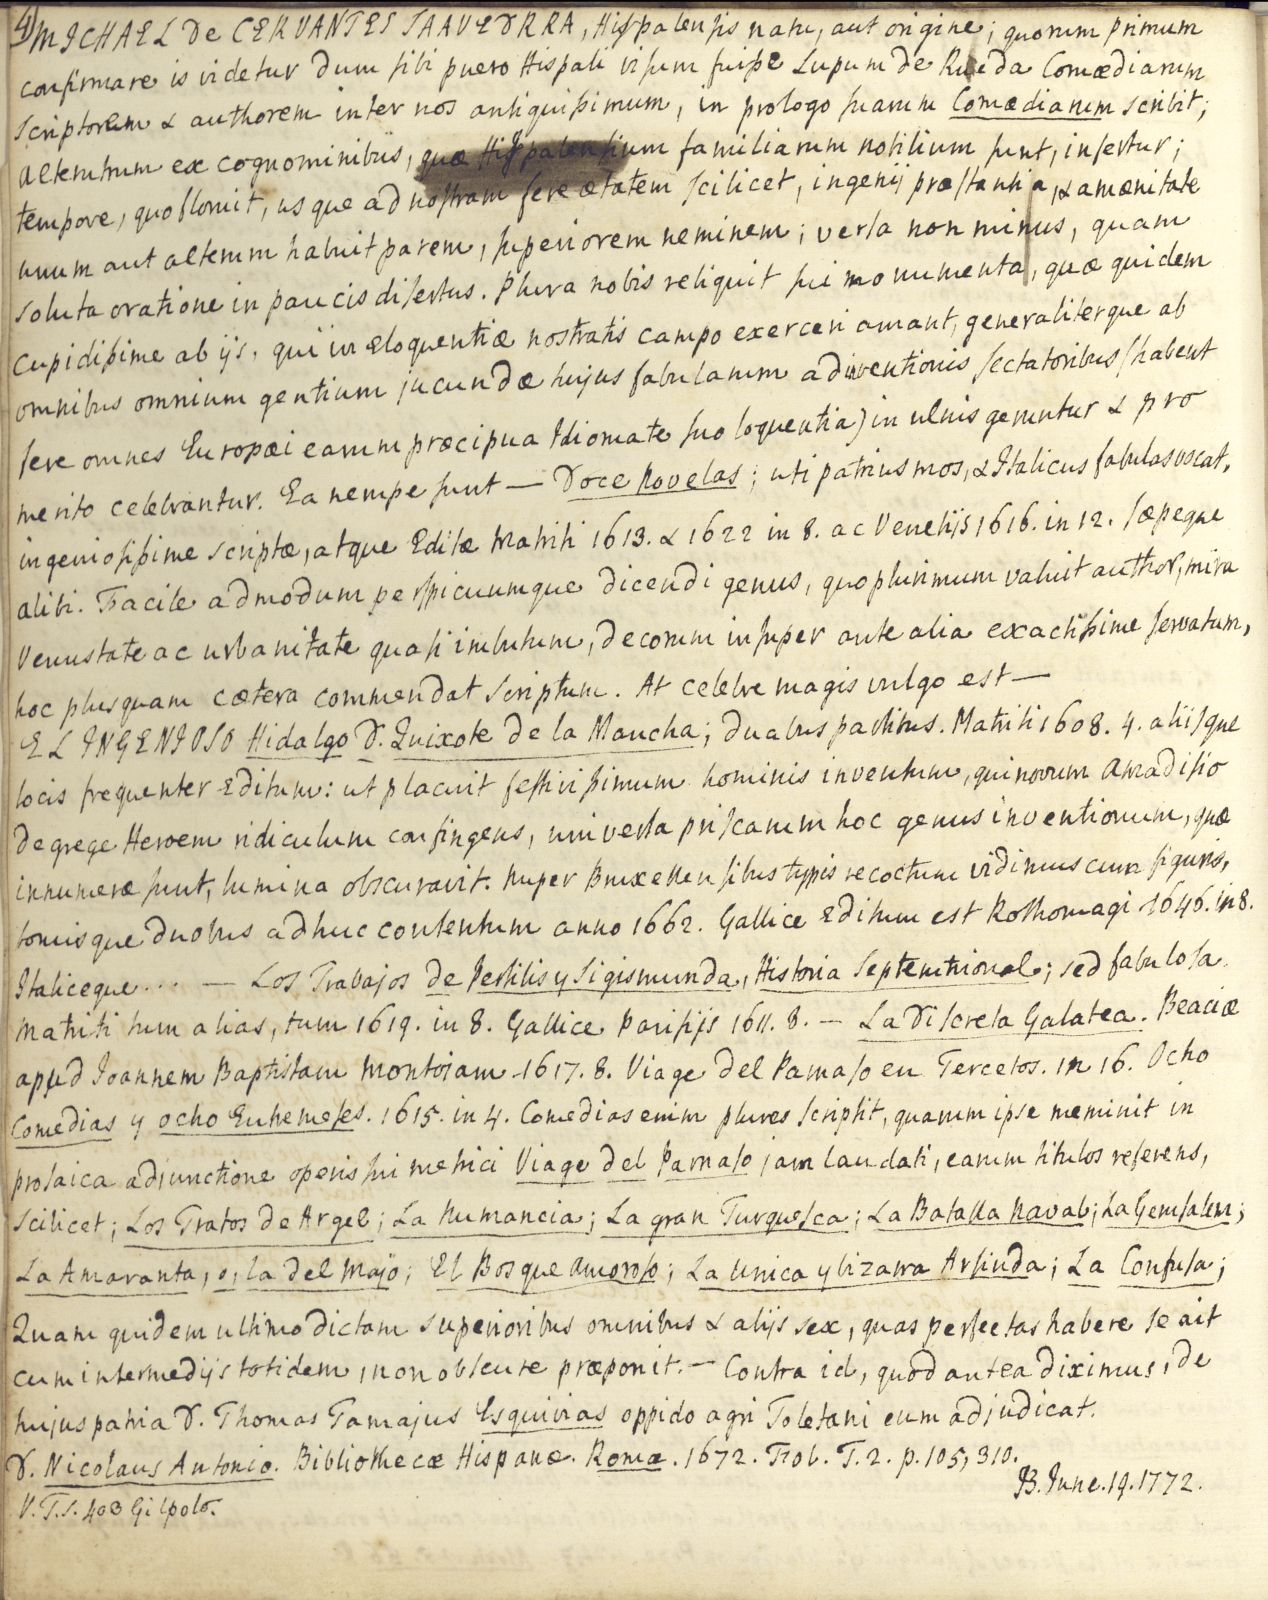 4) MICHAEL De CERVANTES SAAVEDRRA, Hispalensis natu, aut origine; quorum primum
confirmare is videtur dum sibi puero Hispali visum fuisse Lupum de Rueda Comœdiarum
scriptorem & authorem inter nos antiquissimum, in prologo suarum Comœdiarum scribit;
alterutrum ex cognominibus, quæ Hispalensium familiarum nobilium sunt, infertur;
tempore, quo floruit, usque ad nostram fere ætatem scilicet, ingenij præstantia, & amænitate
unum aut alterum habuit parem, superiorem neminem; versa non minus, quam
soluta oratione in paucis disertus. Plura nobis reliquit sui monumenta, quæ quidem
cupidissime ab ijs, qui in eloquentiæ nostratis campo exerceri amant, generaliterque ab
omnibus omnium gentium jucundæ hujus fabularum adinventionis sectatoribus (habent
fere omnes Europæi earum præcipua Idiomate suo loquentia) in ulnis geruntur & pro
merito celebrantur. Ea nempe sunt — Doce Novelas; uti patrius mos, & Italicus fabulas vocat,
ingeniosissime scriptæ, atque Editæ Matriti 1613. & 1622 in 8. ac Venetijs 1616. in 12. sæpeque
alibi. Facile admodum perspicuumque dicendi genus, quo plurimum valuit author, mira
venustate ac urbanitate quasi imbutum, decorum insuper ante alia exactissime servatum,
hoc plusquam cætera commendat scriptum. At celebre magis vulgo est —
EL INGENIOSO Hidalgo D. Quixote de la Mancha; duabus partibus. Matriti 1608. 4. aliisque
locis frequenter Editum: ut placuit festivissimum hominis inventum, qui novum Amadisio
de grege Heroem ridiculum confingens, universa priscarum hoc genus inventionum, quæ
innumeræ sunt, lumina obscuravit. Nuper Bruxellensibus typis recoctum vidimus cum figuris,
tomisque duobus adhuc contentum anno 1662. Gallice Editum est Rothomagi 1646. in 8.
Italiceque ... — Los Trabajos de Persilis y Sigismunda, Historia Septentrional; sed fabulosa.
Matriti tum alias, tum 1619. in 8. Gallice Parisijs 1611. 8. — La Discreta Galatea. Beaciæ
apud Joannem Baptistam Montoiam 1617. 8. Viage del Parnaso en Tercetos. in 16. Ocho
Comedias y ocho Entremeses. 1615. in 4. Comedias enim plures scripsit, quarum ipse meminit in
prosaica adjunctione operis sui metrici Viage del Parnaso jam laudati, earum titulos referens,
scilicet; Los Tratos de Argel; La Numancia; La gran Turquesca; La Batalla Naval; La Gerusalem;
La Amaranta, o, la del Majo; El Bosque Amoroso; La Unica y bizarra Arsinda; La Confusa;
Quam quidem ultimo dictam superioribus omnibus & alijs sex, quas perfectas habere se ait
cum intermedijs totidem, non obscure præponit. — Contra id, quod antea diximus, de
hujus patria D. Thomas Tamajus Esquivias oppido agri Toletani eum adjudicat.
D. Nicolaus Antonio. Bibliothecæ Hispanæ. Romæ. 1672. Fol. T. 2. p. 105, 310.
B. June. 19. 1772.
V. T. S. 403 Gilpolo.